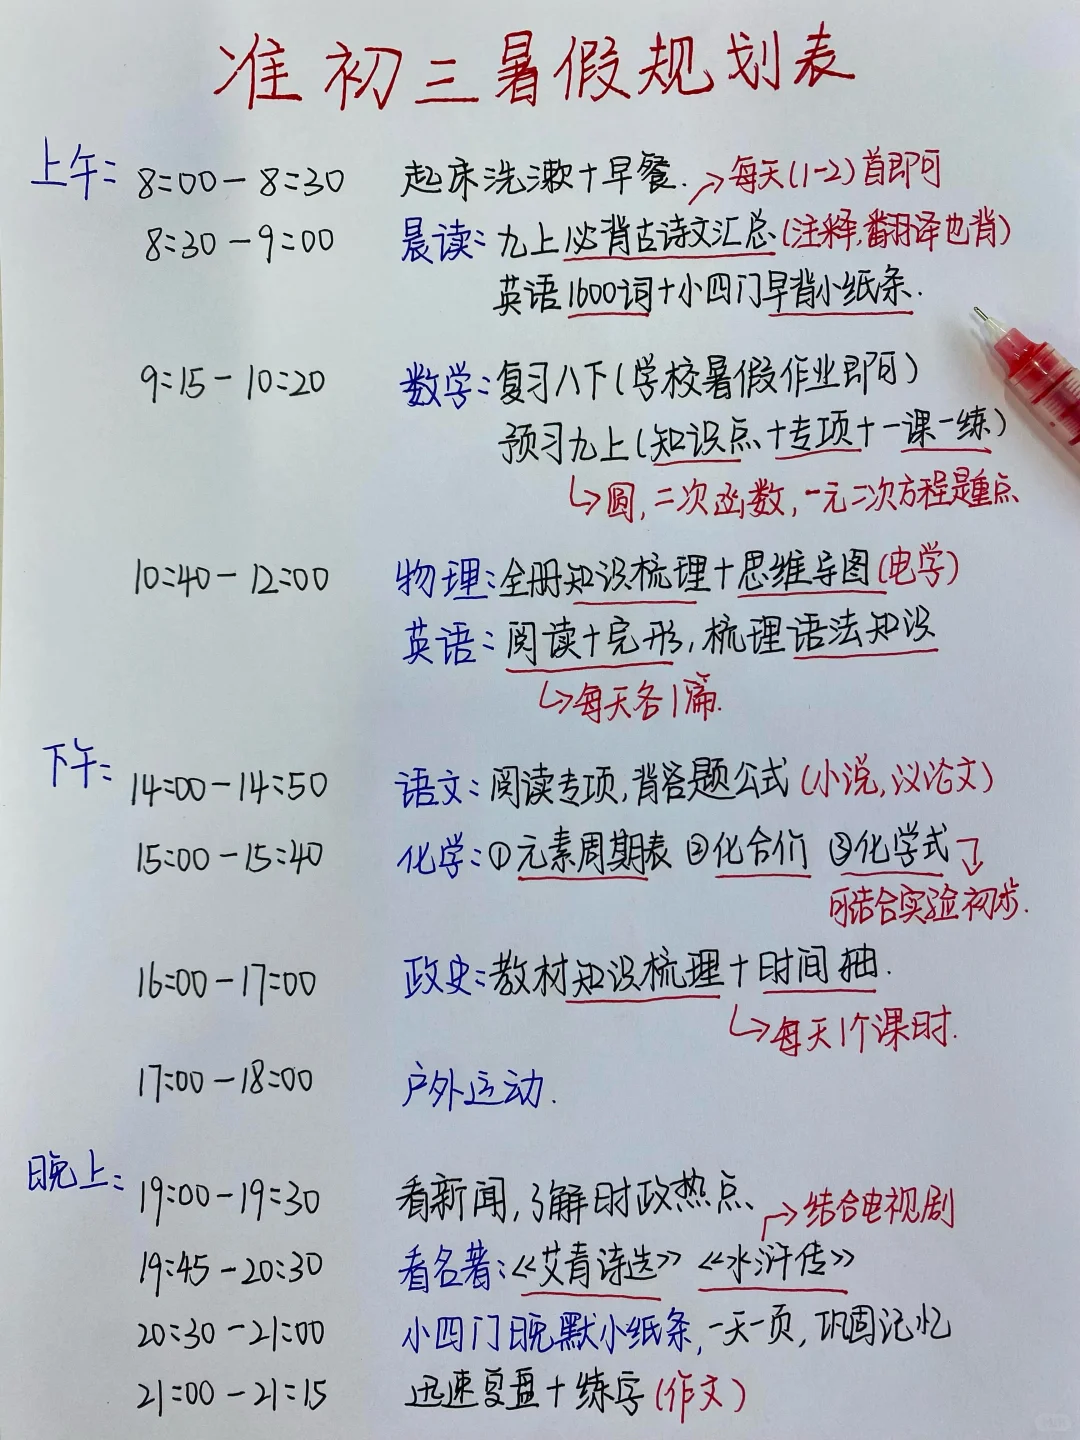 准初三暑假规划表
上午: 8:00-8:30 起床洗漱+早餐. →每天(1-2)首即可
8:30-9:00 晨读: 九上必背古诗文汇总(注释,翻译也背)
英语1600词+小四门早背小纸条.
9:15-10:20 数学: 复习八下(学校暑假作业即可)
预习九上(知识点+专项+一课一练)
↳圆,二次函数,一元二次方程是重点
10:40-12:00 物理: 全册知识梳理+思维导图(电学)
英语: 阅读+完形,梳理语法知识
↳每天各1篇.
下午: 14:00-14:50 语文: 阅读专项,背答题公式(小说,议论文)
15:00-15:40 化学: ①元素周期表 ②化合价 ③化学式
可结合实验初步.
16:00-17:00 政史: 教材知识梳理+时间抽.
↳每天1个课时.
17:00-18:00 户外运动.
晚上: 19:00-19:30 看新闻,了解时政热点、 →结合电视剧
19:45-20:30 看名著:《艾青诗选》《水浒传》
20:30-21:00 小四门晚默小纸条,一天一页,巩固记忆
21:00-21:15 迅速复盘+练字(作文)